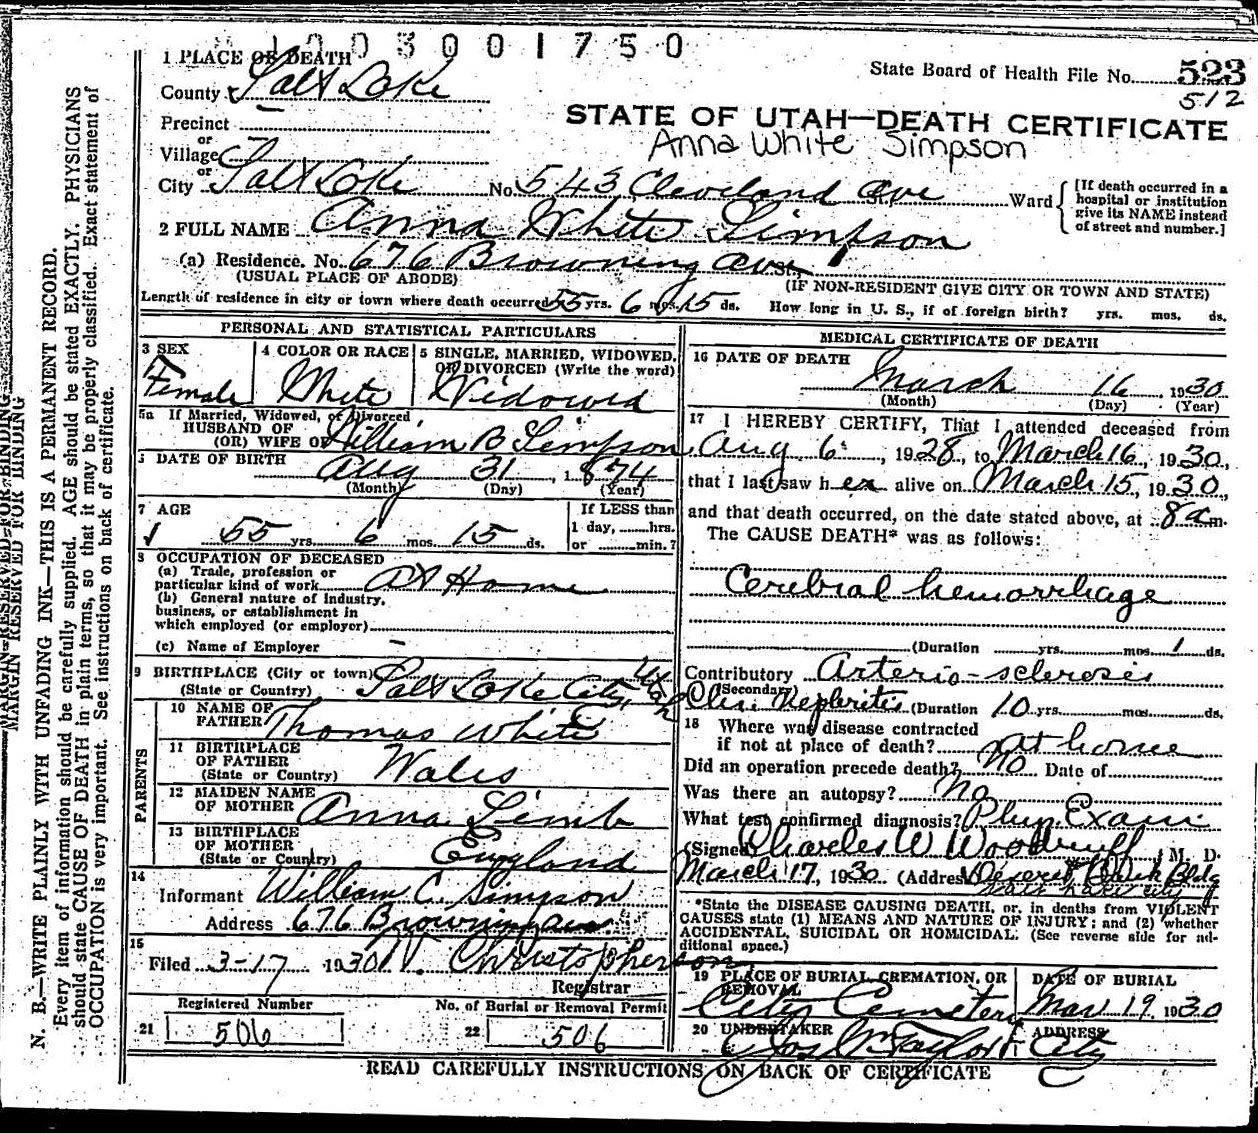 1003001750
1 PLACE OF DEATH
State Board of Health File No. 523
512
County Salt Lake
STATE OF UTAH—DEATH CERTIFICATE
Precinct
Anna White Simpson
or
Village
or
City Salt Lake No. 543 Cleveland Ave St. Ward [If death occurred in a hospital or institution give its NAME instead of street and number.]
2 FULL NAME Anna White Simpson
(a) Residence. No. 676 Browning Ave St.
(USUAL PLACE OF ABODE) (IF NON-RESIDENT GIVE CITY OR TOWN AND STATE)
Length of residence in city or town where death occurred 55 yrs. 6 mos. 15 ds. How long in U. S., if of foreign birth? yrs. mos. ds.
PERSONAL AND STATISTICAL PARTICULARS
3 SEX
Female
4 COLOR OR RACE
White
5 SINGLE, MARRIED, WIDOWED,
OR DIVORCED (Write the word)
Widowed
5a If Married, Widowed, or Divorced
HUSBAND OF
(OR) WIFE OF William B Simpson
DATE OF BIRTH Aug 31, 1874
(Month) (Day) (Year)
7 AGE
55 yrs. 6 mos. 15 ds.
If LESS than
1 day, hrs.
or min.?
8 OCCUPATION OF DECEASED
(a) Trade, profession or
particular kind of work At Home
(b) General nature of industry,
business, or establishment in
which employed (or employer)
(c) Name of Employer
9 BIRTHPLACE (City or town)
(State or Country) Salt Lake City, Utah
PARENTS
10 NAME OF
FATHER Thomas White
11 BIRTHPLACE
OF FATHER Wales
(State or Country)
12 MAIDEN NAME
OF MOTHER Anna Simb
13 BIRTHPLACE
OF MOTHER
(State or Country) England
14
Informant William C. Simpson
Address 676 Browning Ave.
15
Filed 3-17 1930 N. Christopherson
Registrar
Registered Number
21 506
No. of Burial or Removal Permit
22 506
MEDICAL CERTIFICATE OF DEATH
16 DATE OF DEATH
March 16 1930
(Month) (Day) (Year)
17 I HEREBY CERTIFY, That I attended deceased from
Aug 6, 1928, to March 16, 1930,
that I last saw her alive on March 15, 1930,
and that death occurred, on the date stated above, at 8 a m.
The CAUSE DEATH* was as follows:
Cerebral hemorrhage
(Duration yrs. mos. 1 ds.
Contributory Arterio-sclerosis
(Secondary)
Chr. Nephritis (Duration 10 yrs. mos. ds.
18 Where was disease contracted
if not at place of death? At home
Did an operation precede death? No Date of
Was there an autopsy? No
What test confirmed diagnosis? Phys. Exam
(Signed) Charles W Woodruff M. D.
March 17, 1930 (Address) Deseret Bank Bldg
Salt Lake City
*State the DISEASE CAUSING DEATH, or, in deaths from VIOLENT
CAUSES state (1) MEANS AND NATURE OF INJURY; and (2) whether
ACCIDENTAL, SUICIDAL OR HOMICIDAL. (See reverse side for additional space.)
19 PLACE OF BURIAL, CREMATION, OR
REMOVAL
City Cemetery
DATE OF BURIAL
Mar 19 1930
20 UNDERTAKER
Jos Wm Taylor
ADDRESS
City
READ CAREFULLY INSTRUCTIONS ON BACK OF CERTIFICATE
MARGIN RESERVED FOR BINDING
MARGIN RESERVED FOR BINDING
N. B.—WRITE PLAINLY WITH UNFADING INK—THIS IS A PERMANENT RECORD.
Every item of information should be carefully supplied. AGE should be stated EXACTLY. PHYSICIANS
should state CAUSE OF DEATH in plain terms, so that it may be properly classified. Exact statement of
OCCUPATION is very important. See instructions on back of certificate.